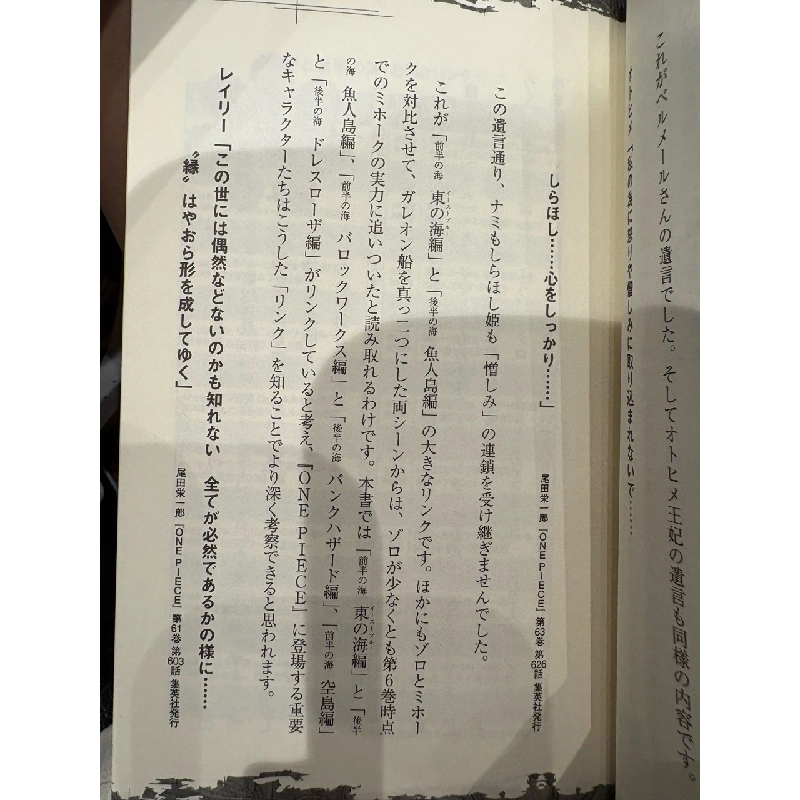 これがベルメールさんの遺言でした。そしてオトヒメ王妃の遺言も同様の内容です。
イトヒメ「私の為に怒りや憎しみに取り込まれないで……
しらほし……心をしっかり……」
尾田栄一郎『ONE PIECE』第63巻 第626話 集英社発行
この遺言通り、ナミもしらほし姫も「憎しみ」の連鎖を受け継ぎませんでした。
これが「前半の海 東の海編」と「後半の海 魚人島編」の大きなリンクです。ほかにもゾロとミホー
クを対比させて、ガレオン船を真っ二つにした両シーンからは、ゾロが少なくとも第6巻時点
でのミホークの実力に追いついたと読み取れるわけです。本書では「前半の海 東の海編」と「後半
の海 魚人島編」、「前半の海 バロックワークス編」と「後半の海 パンクハザード編」、「前半の海 空島編」
と「後半の海 ドレスローザ編」がリンクしていると考え、『ONE PIECE』に登場する重要
なキャラクターたちはこうした「リンク」を知ることでより深く考察できると思われます。
レイリー「この世には偶然などないのかも知れない 全てが必然であるかの様に……
〝縁〟はやおら形を成してゆく」
尾田栄一郎『ONE PIECE』第61巻 第603話 集英社発行